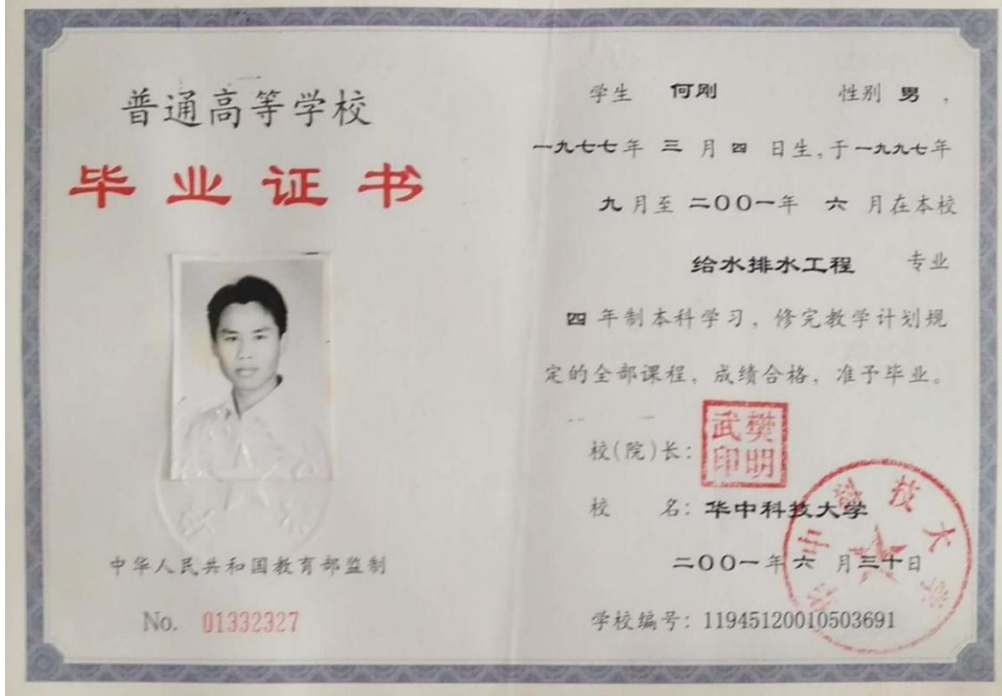 普通高等学校
毕业证书
中华人民共和国教育部监制
No. 01332327
学生 何刚 性别 男，
一九七七年 三 月 四 日生，于一九九七年
九 月至 二〇〇一年 六 月在本校
给水排水工程 专业
四 年制本科学习，修完教学计划规
定的全部课程，成绩合格，准予毕业。
校(院)长：
樊明武印
校 名：华中科技大学
二〇〇一年六 月三十日
华中科技大学
学校编号：11945120010503691